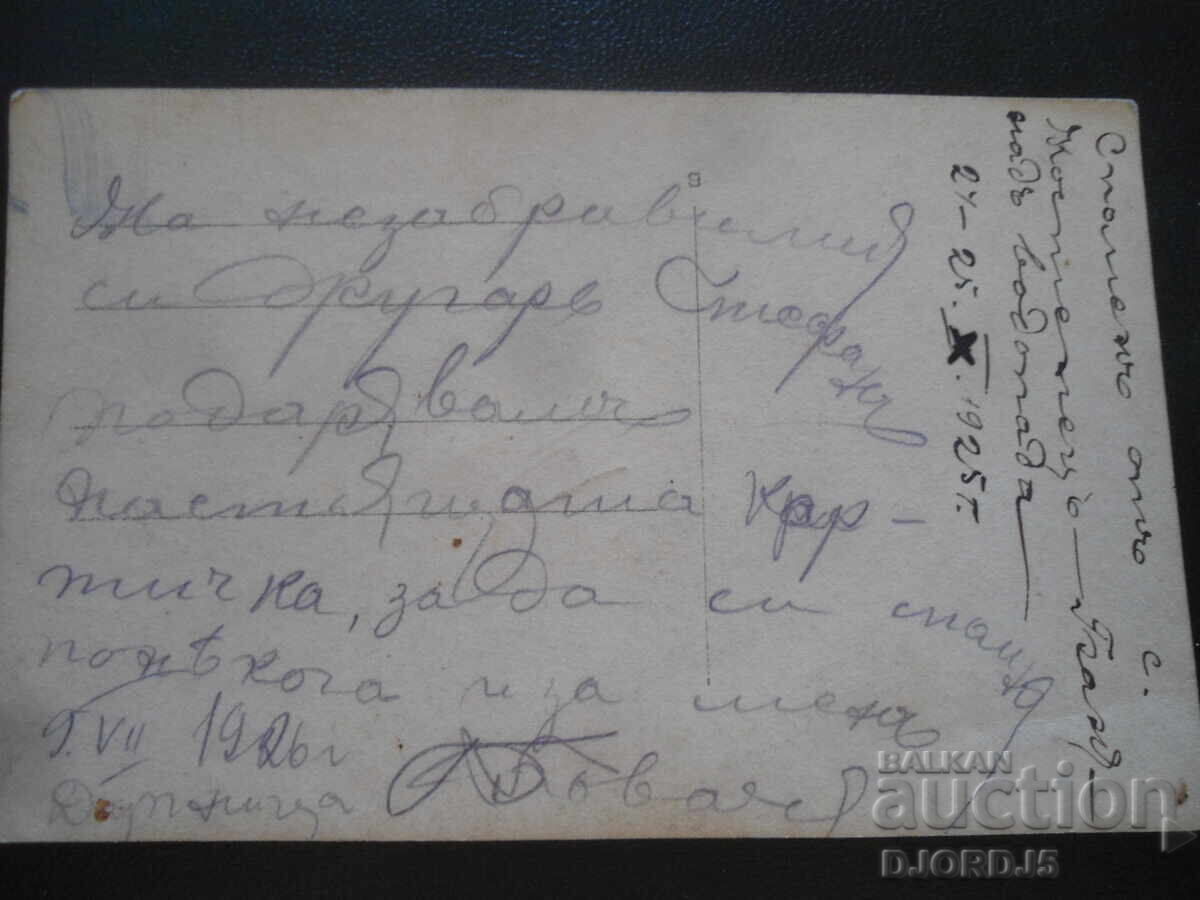 На незабравимия
си другарь Стефанъ
подарявамъ
настоящата кар-
тичка, за да си спомня
понѣкога и за менъ
9.VII 1926 г
Дупница
Спомень отъ с.
Костенецъ —
надъ водопада
24 – 25. X. 1925 г.
BALKAN
auction
DJORDJ5